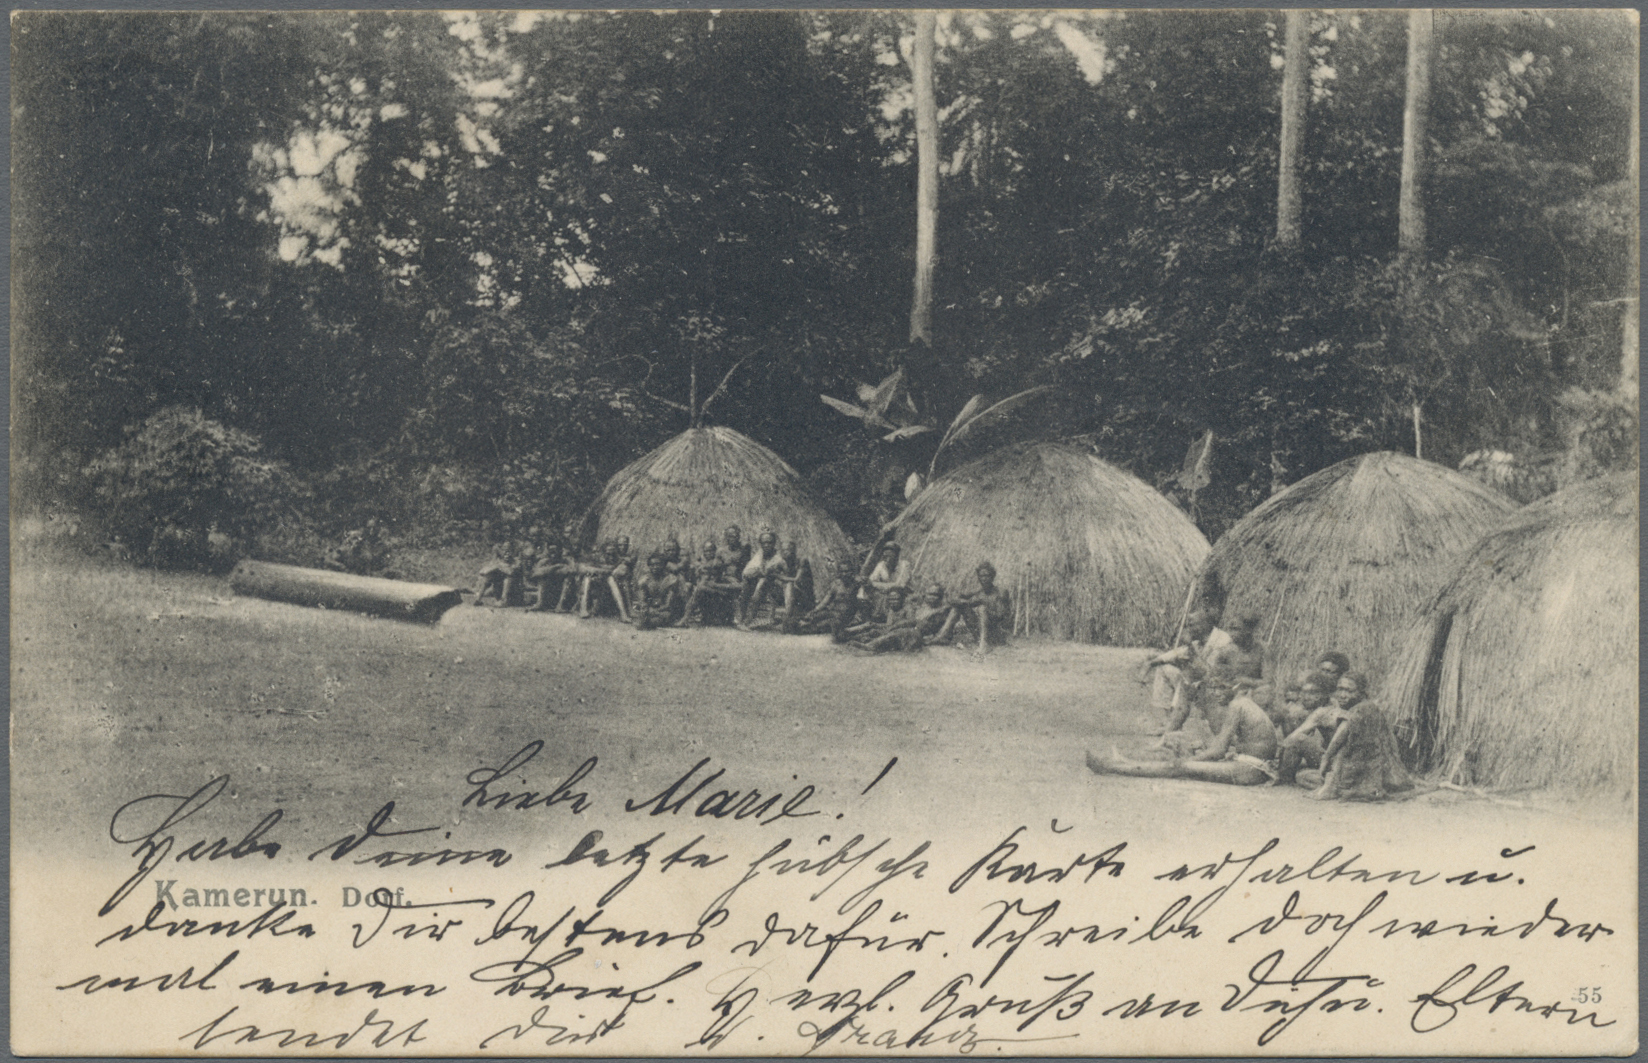 Liebe Marie!
Habe Deine letzte hübsche Karte erhalten u.
Kamerun. Dorf.
danke Dir bestens dafür. Schreibe doch wieder
mal einen Brief. Herzl. Gruß an Dich u. Eltern
55
sendet Dir